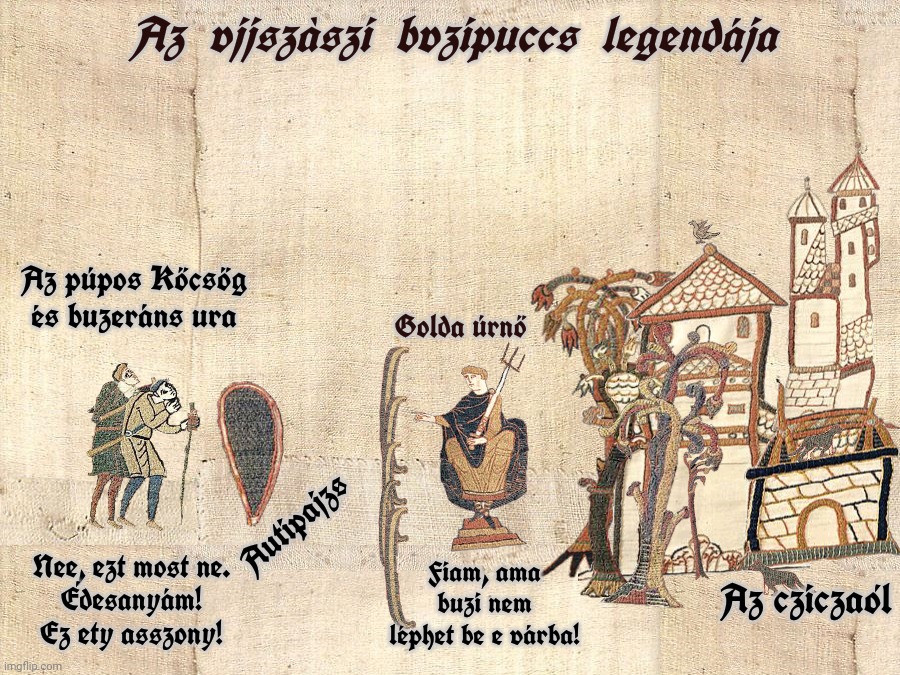 Az vjjszàszi bvzipuccs legendája
Az púpos Kőcsőg
és buzeráns ura
Golda úrnő
Autipajzs
Nee, ezt most ne.
Édesanyám!
Ez ety asszony!
Fiam, ama
buzi nem
léphet be e várba!
Az cziczaól
imgflip.com